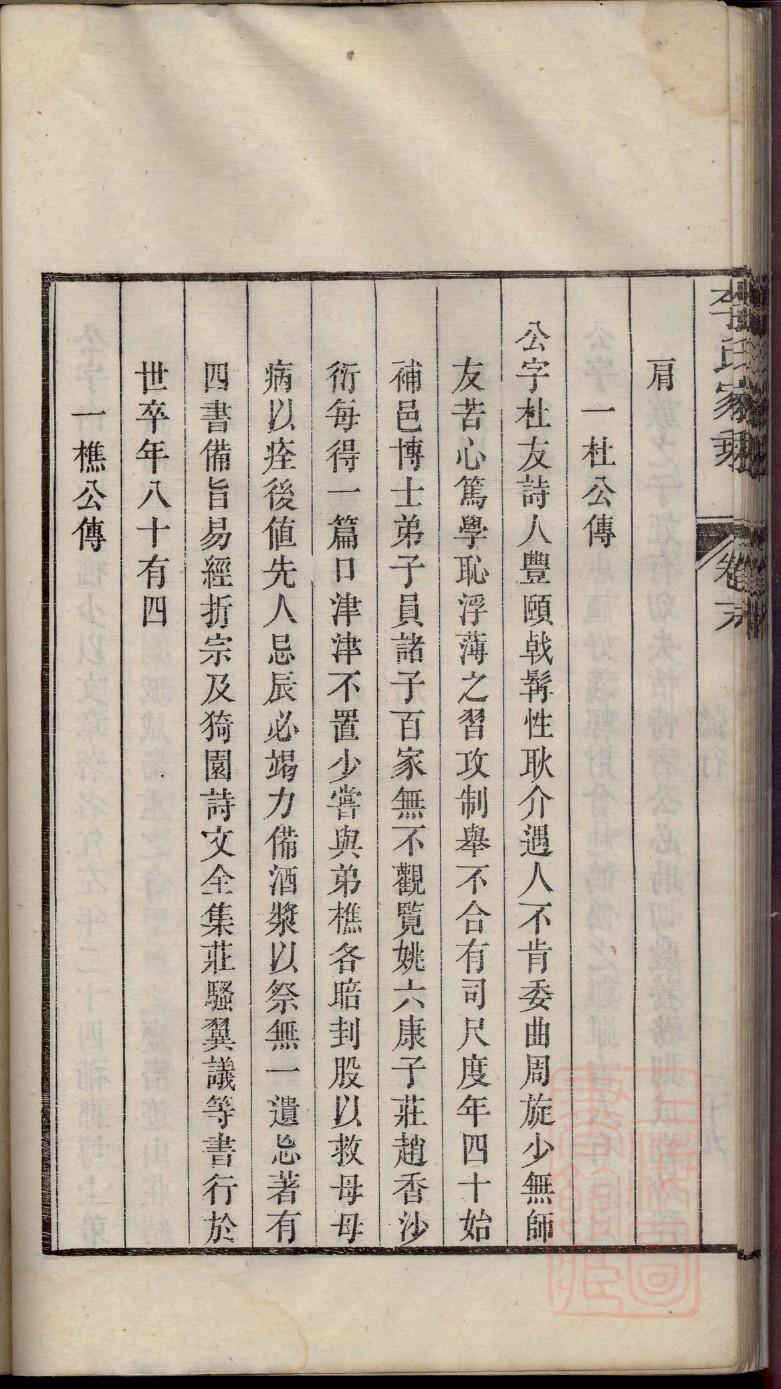 氏家乘
卷末
肩
一杜公傳
公字杜友詩人豐頤戟髯性耿介遇人不肯委曲周旋少無師
友苦心篤學恥浮薄之習攻制舉不合有司尺度年四十始
補邑博士弟子員諸子百家無不觀覽姚六康子莊趙香沙
衍每得一篇口津津不置少嘗與弟樵各暗刲股以救母母
病以痊後值先人忌辰必竭力備酒漿以祭無一遺忘著有
四書備旨易經折宗及猗園詩文全集莊騷翼議等書行於
世卒年八十有四
一樵公傳